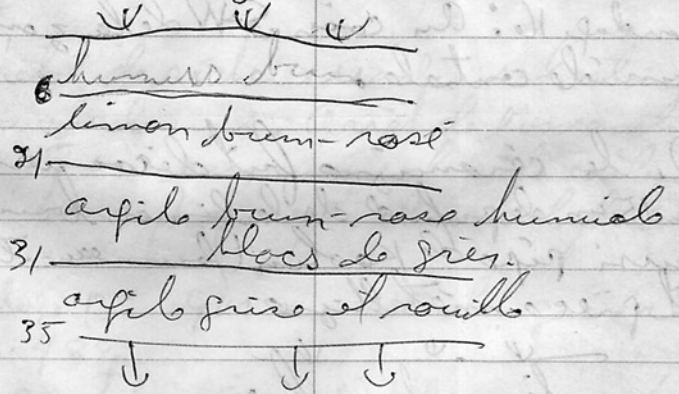 humus brun
6
limon brun-rosé
21
argile brun-rose humide
blocs de grès.
31
argile grise et rouille
35